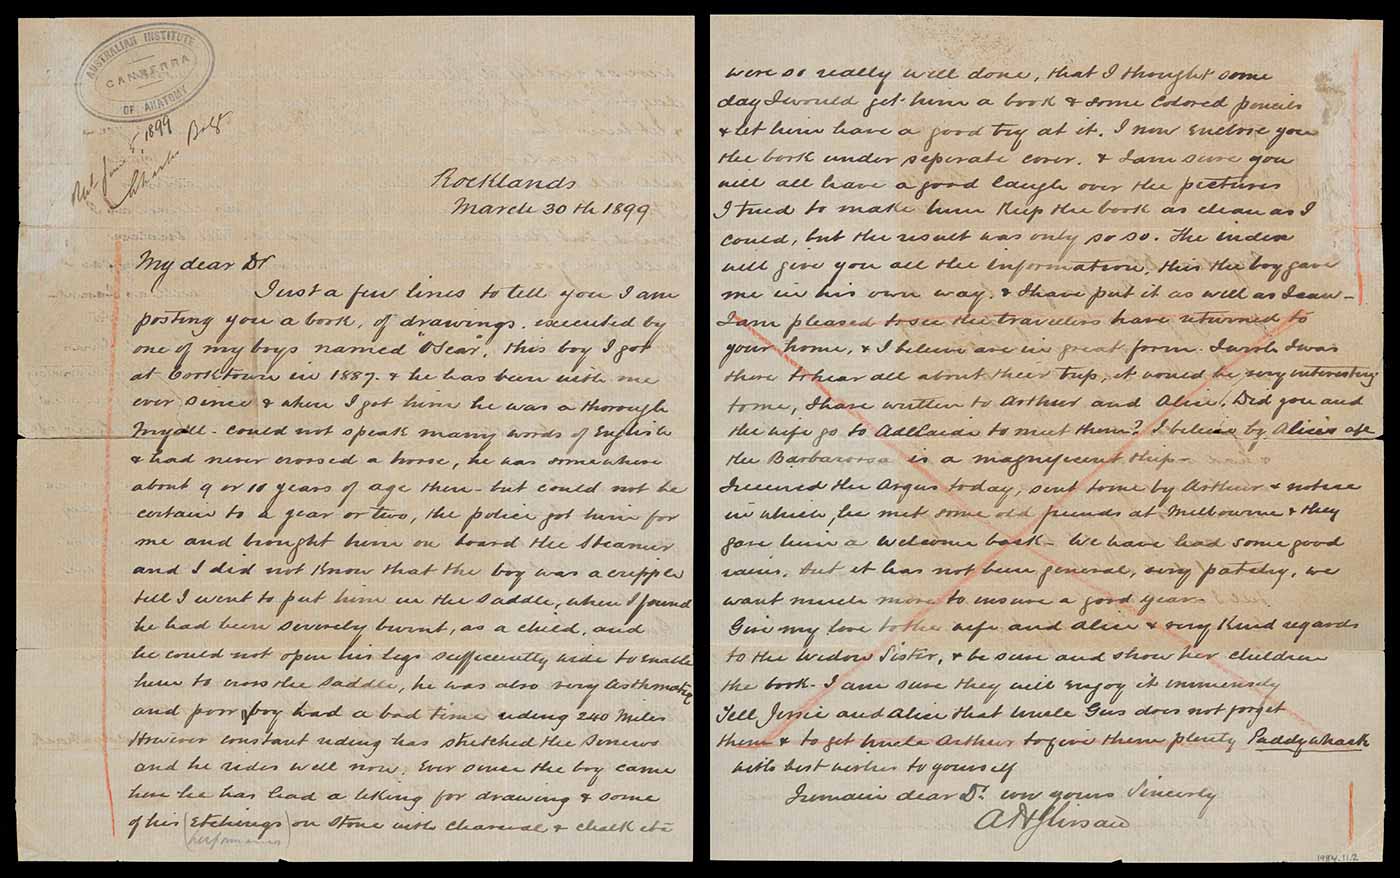 AUSTRALIAN INSTITUTE
CANBERRA
OF ANATOMY
June 5, 1899
Rocklands
March 30th 1899
My dear Dr
Just a few lines to tell you I am
posting you a book, of drawings, executed by
one of my boys named "Oscar", this boy I got
at Cooktown in 1887. & he has been with me
ever since & when I got him he was a thorough
Myall - could not speak many words of English
& had never crossed a horse, he was somewhere
about 9 or 10 years of age then - but could not be
certain to a year or two, the police got him for
me and brought him on board the Steamer
and I did not know that the boy was a cripple
till I went to put him in the saddle, when I found
he had been severely burnt, as a child, and
he could not open his legs sufficiently wide to enable
him to cross the saddle, he was also very asthmatic
and poor boy had a bad time riding 240 miles
However constant riding has stretched the sinews
and he rides well now. Ever since the boy came
here he has had a liking for drawing & some
of his (Etchings) on stone with charcoal & chalk etc
performances
were so really well done, that I thought some
day I would get him a book & some colored pencils
& let him have a good try at it. I now enclose you
the book under seperate cover. & I am sure you
will all have a good laugh over the pictures
I tried to make him keep the book as clean as I
could, but the result was only so so. The index
will give you all the information, this the boy gave
me in his own way. & I have put it as well as I can -
I am pleased to see the travellers have returned to
your home, & I believe are in great form. I wish I was
there to hear all about their trip, it would be very interesting
to me, I have written to Arthur and Alice. Did you and
the wife go to Adelaide to meet them? I believe by Alice's
the Barbarossa is a magnificent ship -
I received the Argus today, sent to me by Arthur & notice
in which, he met some old friends at Melbourne & they
gave him a welcome back - We have had some good
rains, but it has not been general, very patchy, we
want much more to insure a good year
Give my love to the wife and Alice & very kind regards
to the widow sister, & be sure and show her children
the book. I am sure they will enjoy it immensely
Tell Jessie and Alice that Uncle Gus does not forget
them & to get Uncle Arthur to give them plenty Paddywhack
with best wishes to yourself
I remain dear Dr. yours Sincerly
A H Glissan
1984.11.2